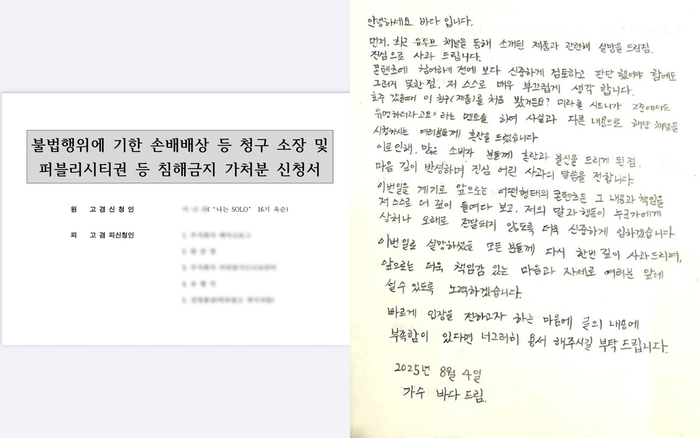 불법행위에 기한 손배배상 등 청구 소장 및
퍼블리시티권 등 침해금지 가처분 신청서
원 고 겸 신 청 인
("나는 SOLO" 16기 옥순)
피 고 겸 피신청인
1.
2.
3.
4.
5.
안녕하세요 바다 입니다.
먼저, 최근 유튜브 채널을 통해 소개된 제품과 관련해 실망을 드린점,
진심으로 사과 드립니다.
콘텐츠에 참여하기 전에 보다 신중하게 검토하고 판단 했어야 함에도
그러지 못한 점, 저 스스로 매우 부끄럽게 생각 합니다.
호주 갔을때 이 친구(제품)를 처음 봤거든요? 미란클 시드니가 2존에서도
유명하더라고요" 라는 멘트를 하여 사실과 다른 내용으로 해당 채널을
시청하시는 여러분들께 혼란을 드렸습니다
이로 인해, 많은 소비자 분들께 혼란과 불신을 드리게 된점,
마음 깊이 반성하며 진심 어린 사과의 말씀을 전합니다.
이번일을 계기로 앞으로는 어떤형태의 콘텐츠든 그 내용과 책임을
저 스스로 더 깊이 들여다 보고, 저의 말과 행동이 누군가에게
상처나 오해로 전달되지 않도록 더욱 신중하게 임하겠습니다
이번일로 실망하셨을 모든 분들께 다시 한번 깊이 사과드리며,
앞으로는 더욱 책임감 있는 마음과 자세로 여러분 앞에
설 수 있도록 노력하겠습니다.
바르게 입장을 전하고자 하는 마음에 글의 내용에
부족함이 있다면 너그러히 용서 해주시길 부탁 드립니다.
2025년 8월 4일
가수 바다 드림.